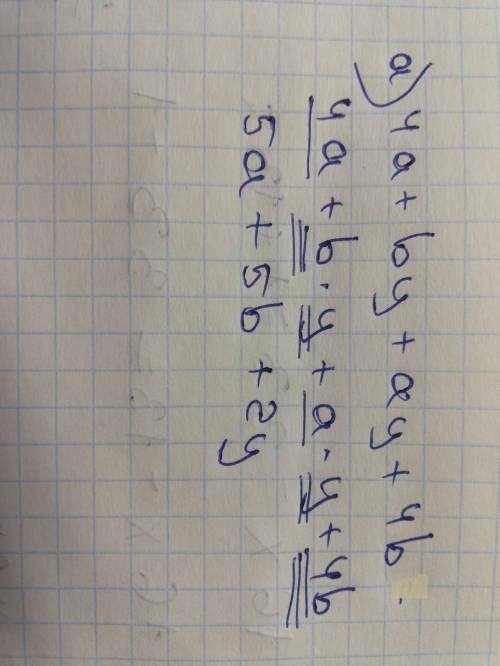 a) 4a + by + ay + 4b.
4a + b · y + a · y + 4b
5a + 5b + 2y